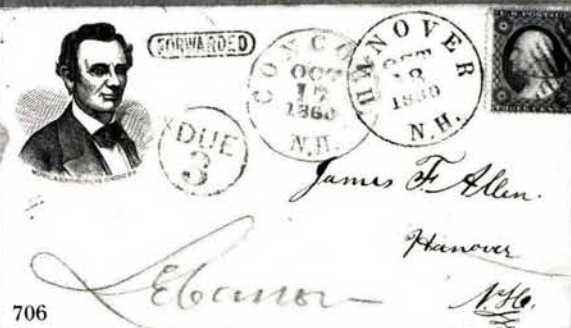 FORWARDED
CONCO
OCT
17
1860
N.H.
HANOVER
OCT
18
1860
N.H.
DUE
3
James F. Allen.
Hanover
N.H.
Lebanon
706